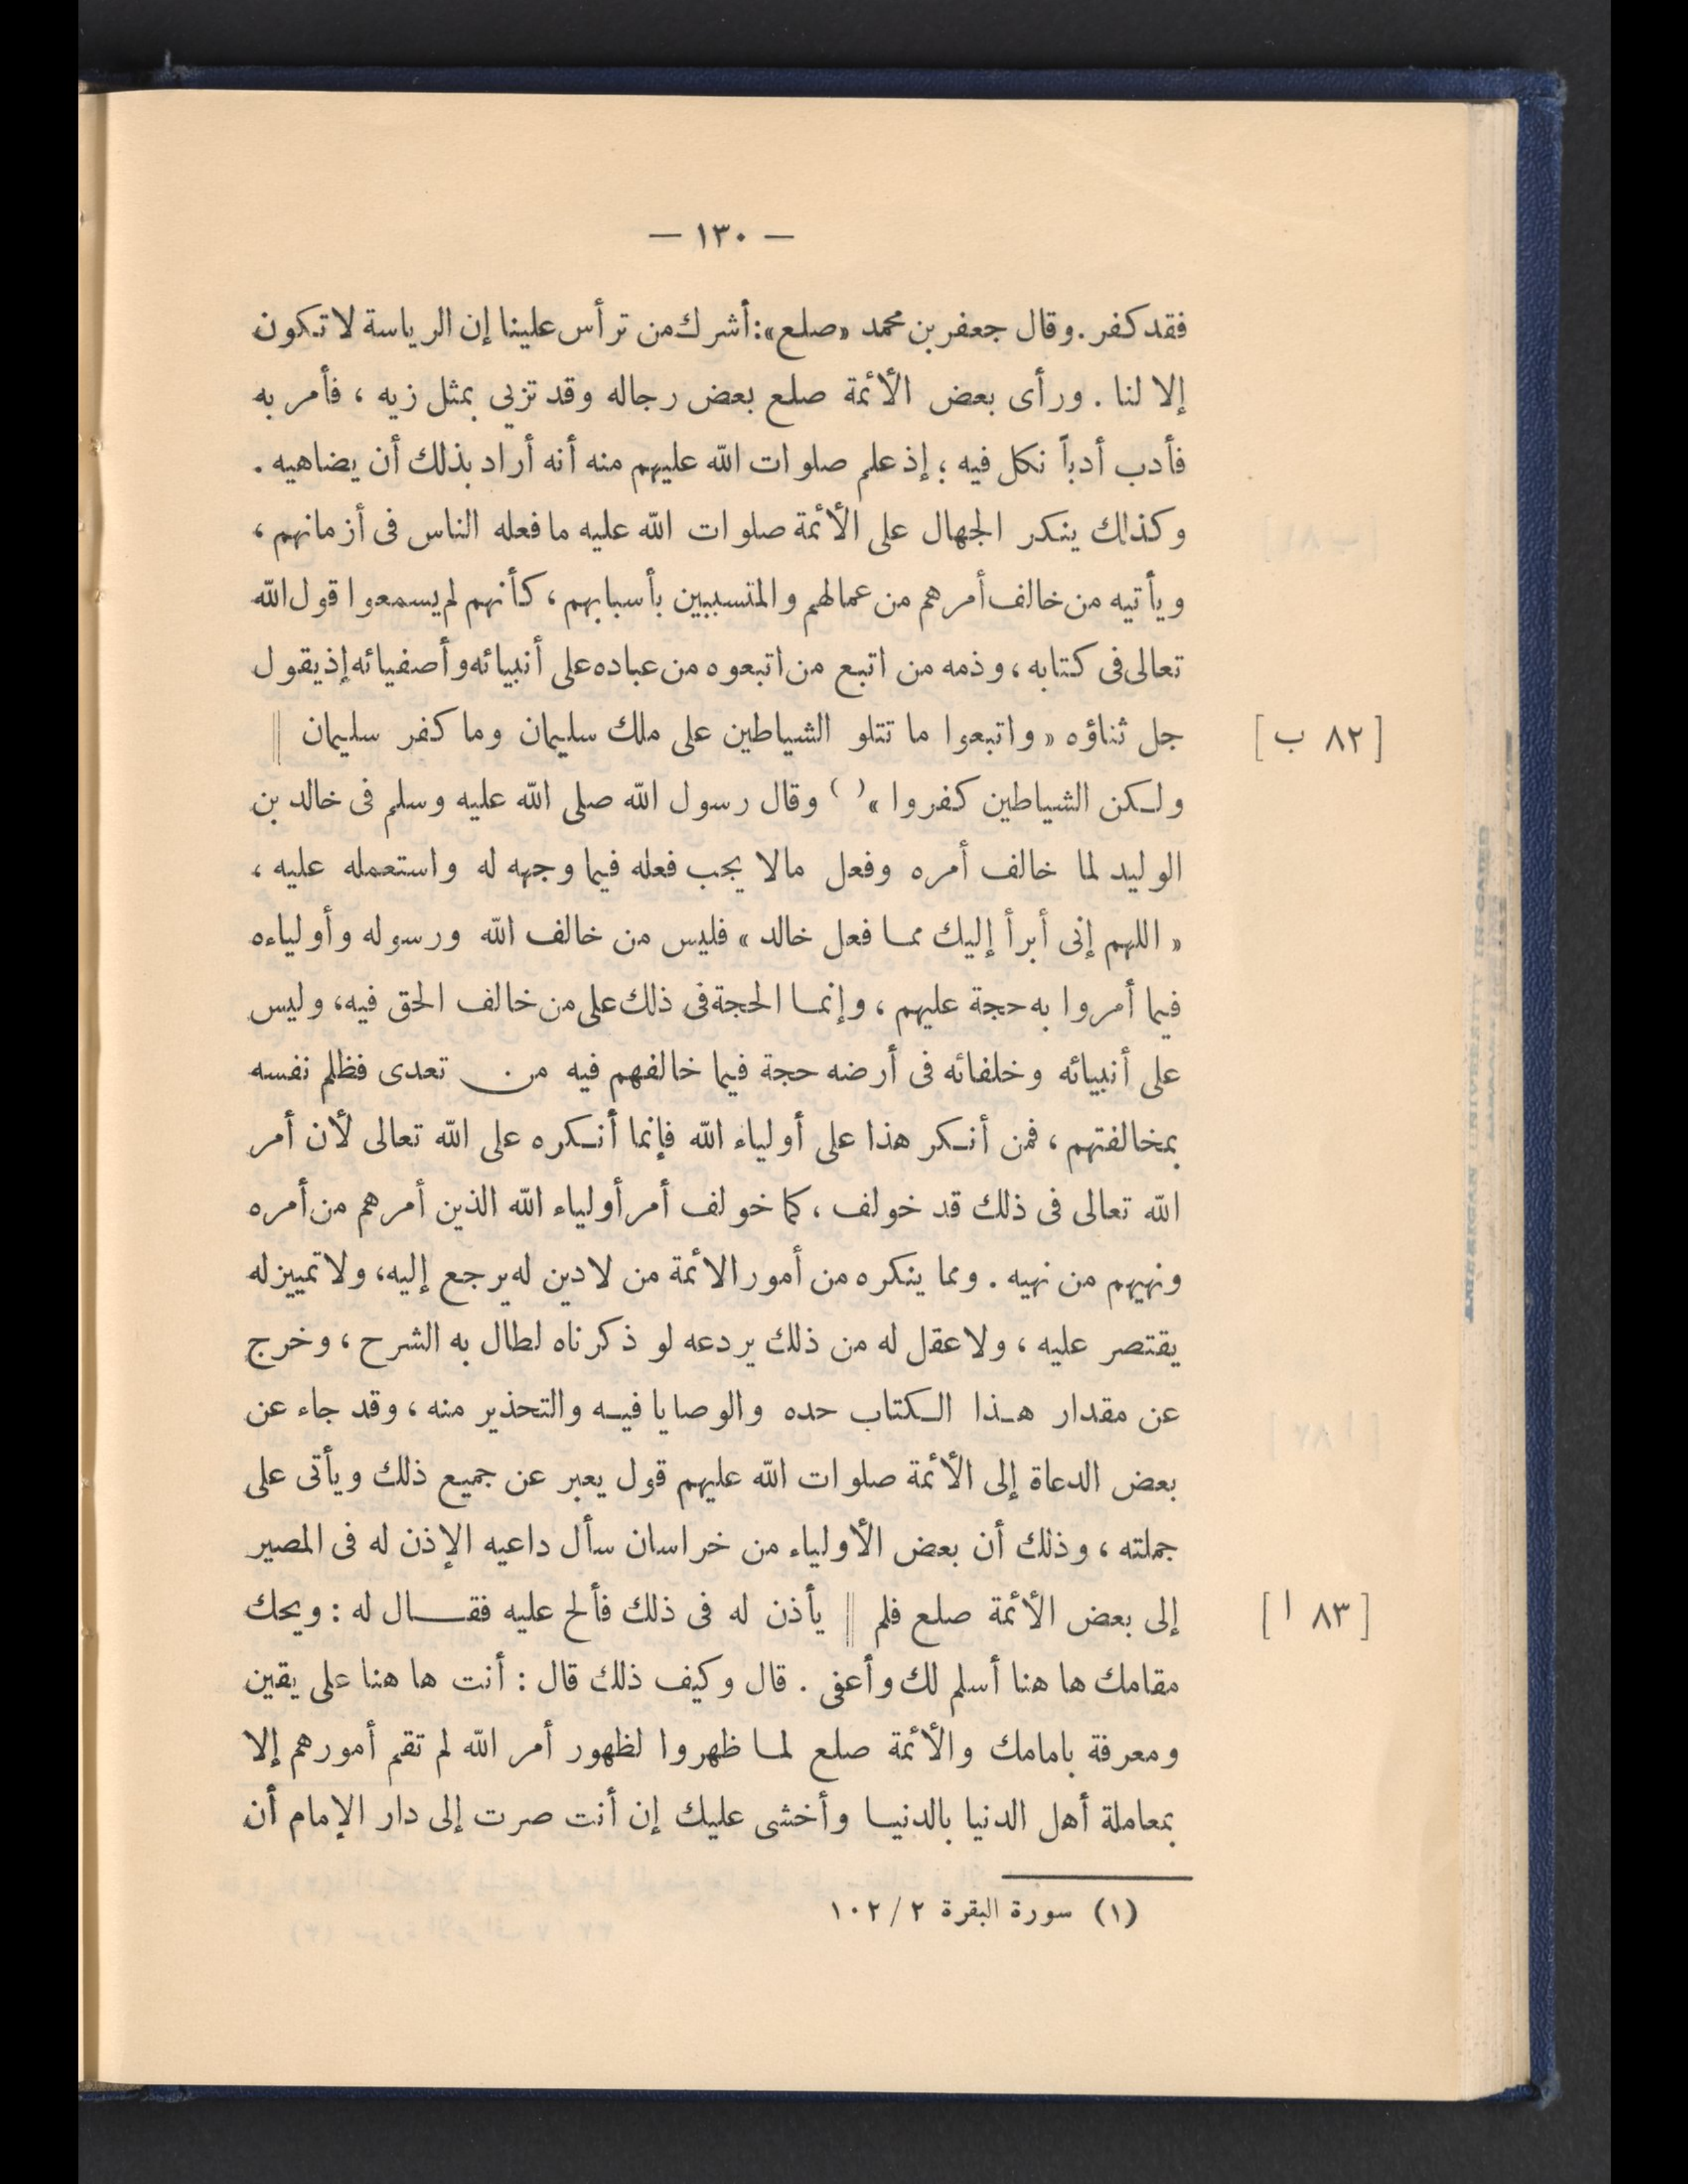 — ١٣٠ —
فقد كفر . وقال جعفر بن محمد «صلع»: أشرك من ترأس علينا إن الرياسة لا تكون
إلا لنا . ورأى بعض الأئمة صلع بعض رجاله وقد تزيى بمثل زيه ، فأمر به
فأدب أدباً نكل فيه ؛ إذ علم صلوات الله عليهم منه أنه أراد بذلك أن يضاهيه .
وكذلك ينكر الجهال على الأئمة صلوات الله عليه ما فعله الناس فى أزمانهم ،
ويأتيه من خالف أمرهم من عمالهم والمتسببين بأسبابهم ، كأنهم لم يسمعوا قول الله
تعالى فى كتابه ، وذمه من اتبع من اتبعوه من عباده على أنبيائه وأصفيائه إذ يقول
جل ثناؤه « واتبعوا ما تتلو الشياطين على ملك سليمان وما كفر سليمان || [ ٨٢ ب ]
ولكن الشياطين كفروا »( ) وقال رسول الله صلى الله عليه وسلم فى خالد بن
الوليد لما خالف أمره وفعل مالا يجب فعله فيما وجهه له واستعمله عليه ،
« اللهم إنى أبرأ إليك مما فعل خالد » فليس من خالف الله ورسوله وأولياءه
فيما أمروا به حجة عليهم ، وإنما الحجة فى ذلك على من خالف الحق فيه، وليس
على أنبيائه وخلفائه فى أرضه حجة فيما خالفهم فيه من تعدى فظلم نفسه
بمخالفتهم ، فمن أنكر هذا على أولياء الله فإنما أنكره على الله تعالى لأن أمر
الله تعالى فى ذلك قد خولف ، كما خولف أمر أولياء الله الذين أمرهم من أمره
ونهيهم من نهيه . ومما ينكره من أمور الائمة من لادين له يرجع إليه، ولا تمييز له
يقتصر عليه ، ولا عقل له من ذلك يردعه لو ذكرناه لطال به الشرح ، وخرج
عن مقدار هذا الكتاب حده والوصايا فيه والتحذير منه ، وقد جاء عن
بعض الدعاة إلى الأئمة صلوات الله عليهم قول يعبر عن جميع ذلك ويأتى على
جملته ، وذلك أن بعض الأولياء من خراسان سأل داعيه الإذن له فى المصير
إلى بعض الأئمة صلع فلم || يأذن له فى ذلك فألح عليه فقال له : ويحك [ ٨٣ ا ]
مقامك ها هنا أسلم لك وأعفى . قال وكيف ذلك قال : أنت ها هنا على يقين
ومعرفة بامامك والأئمة صلع لما ظهروا لظهور أمر الله لم تقم أمورهم إلا
بمعاملة أهل الدنيا بالدنيا وأخشى عليك إن أنت صرت إلى دار الإمام أن
(١) سورة البقرة ٢ / ١٠٢